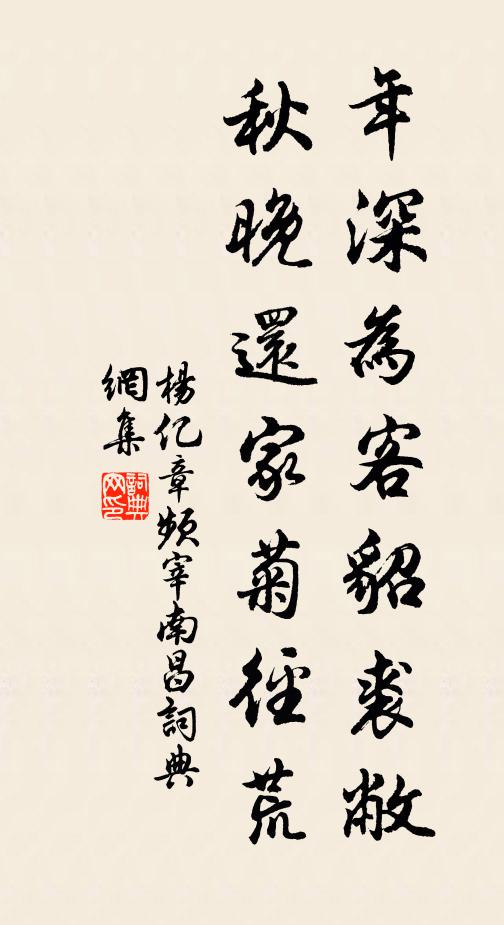 年深為客貂裘敝
秋晚還家菊徑荒
楊億章頻宰南昌詞典
網集
詞典
网印